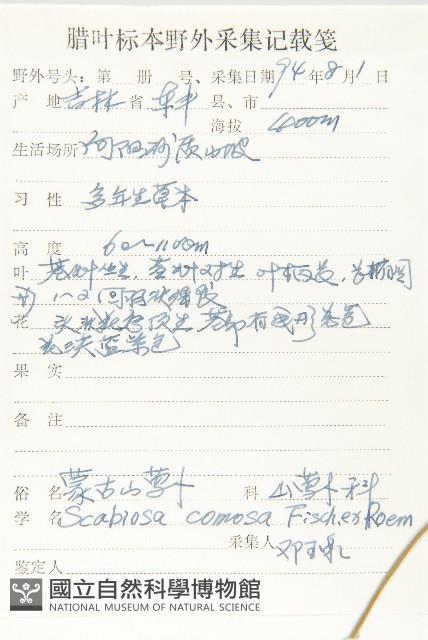 腊叶标本野外采集记载笺
野外号头：第 册 号、采集日期 94年8月1日
产 地 吉林省 县、市
海拔 400m
生活场所 向阳砂质山坡
习 性 多年生草本
高 度 60~100cm
叶 基叶丛生，茎叶对生 叶柄长，
1~2回羽状
花 头状花序顶生 基部有 总苞
花淡蓝紫色
果 实
备 注
俗 名 蒙古山萝卜 科 山萝卜科
学 名 Scabiosa comosa Fischer Roem
采集人
鉴定人
國立自然科學博物館
NATIONAL MUSEUM OF NATURAL SCIENCE